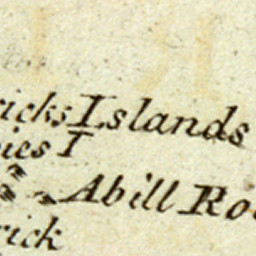 ricks Islands
nies I
Abill Ro
rick